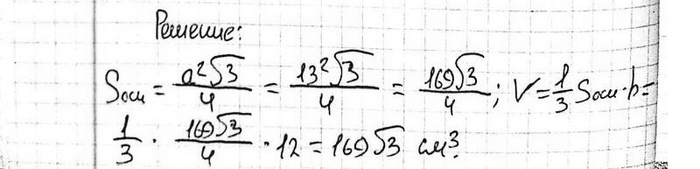 Решение:
Sосн = a²√3/4 = 13²√3/4 = 169√3/4; V = 1/3 Sосн·h =
1/3 · 169√3/4 · 12 = 169√3 см³.